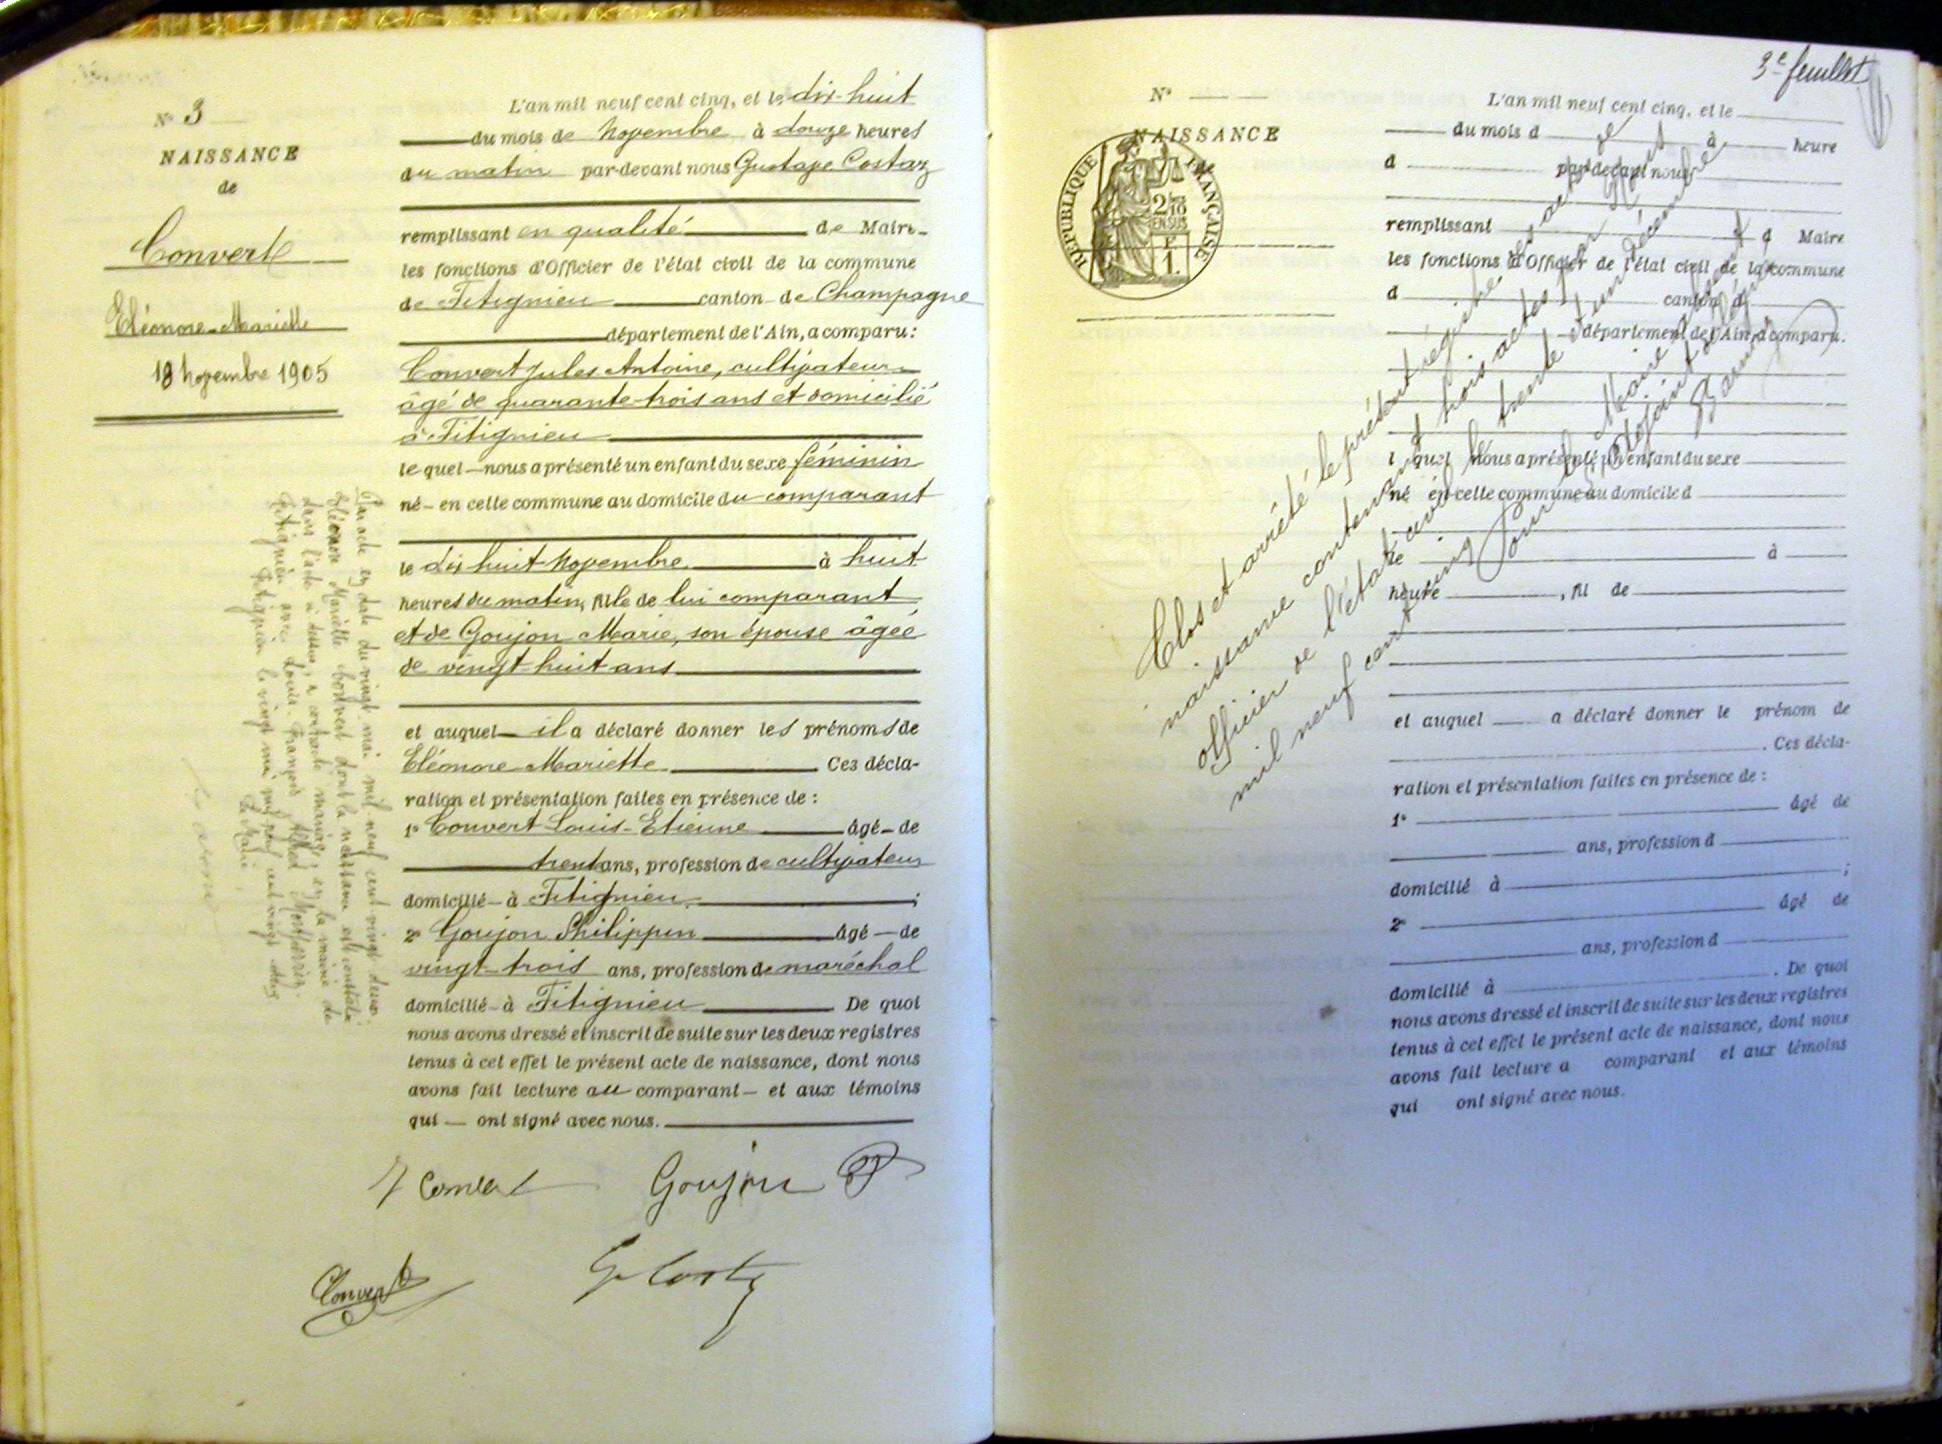 N° 3
NAISSANCE
de
Convert
Eléonore-Mariette
18 Novembre 1905
L'an mil neuf cent cinq, et le dix-huit
du mois de Novembre à douze heures
du matin par-devant nous Gustave Costaz
remplissant en qualité de Maire
les fonctions d'Officier de l'état civil de la commune
de Fitignieu canton de Champagne
département de l'Ain, a comparu:
Convert Jules Antoine, cultivateur
âgé de quarante-trois ans et domicilié
à Fitignieu
lequel nous a présenté un enfant du sexe féminin
né en cette commune au domicile du comparant
le dix huit Novembre à huit
heures du matin, fille de lui comparant
et de Goujon Marie, son épouse âgée
de vingt-huit ans
et auquel il a déclaré donner les prénoms de
Eléonore Mariette Ces décla-
ration et présentation faites en présence de :
1° Convert Louis-Etienne âgé de
trente ans, profession de cultivateur
domicilié à Fitignieu ;
2° Goujon Philippin âgé de
vingt-trois ans, profession de maréchal
domicilié à Fitignieu De quoi
nous avons dressé et inscrit de suite sur les deux registres
tenus à cet effet le présent acte de naissance, dont nous
avons fait lecture au comparant et aux témoins
qui ont signé avec nous.
J Convert Goujon P
Convert G Costaz
Par acte en date du vingt mai mil neuf cent vingt deux,
Eléonore Mariette Convert dont la naissance est constatée
dans l'acte ci-dessus, a contracté mariage en la mairie de
Fitignieu avec Louis François Alfred
Fitignieu le vingt mai mil neuf cent vingt deux
Le Maire,
3e feuillet
N°
NAISSANCE
de
RÉPUBLIQUE FRANÇAISE
2/10 EN SUS
1 F
L'an mil neuf cent cinq, et le
du mois d à heure
d par-devant nous
remplissant d Maire
les fonctions d'Officier de l'état civil de la commune
d canton d
département de l'Ain, a comparu.
l quel nous a présenté un enfant du sexe
né en cette commune au domicile d
le à
heure , fil de
et auquel a déclaré donner le prénom de
. Ces décla-
ration et présentation faites en présence de :
1° âgé de
ans, profession d
domicilié à ;
2° âgé de
ans, profession d
domicilié à . De quoi
nous avons dressé et inscrit de suite sur les deux registres
tenus à cet effet le présent acte de naissance, dont nous
avons fait lecture a comparant et aux témoins
qui ont signé avec nous.
Clos et arrêté le présent registre des actes de
naissance contenant trois actes par Nous
officier de l'état civil le trente et un décembre
mil neuf cent cinq
Pour le Maire absent
L'Adjoint délégué